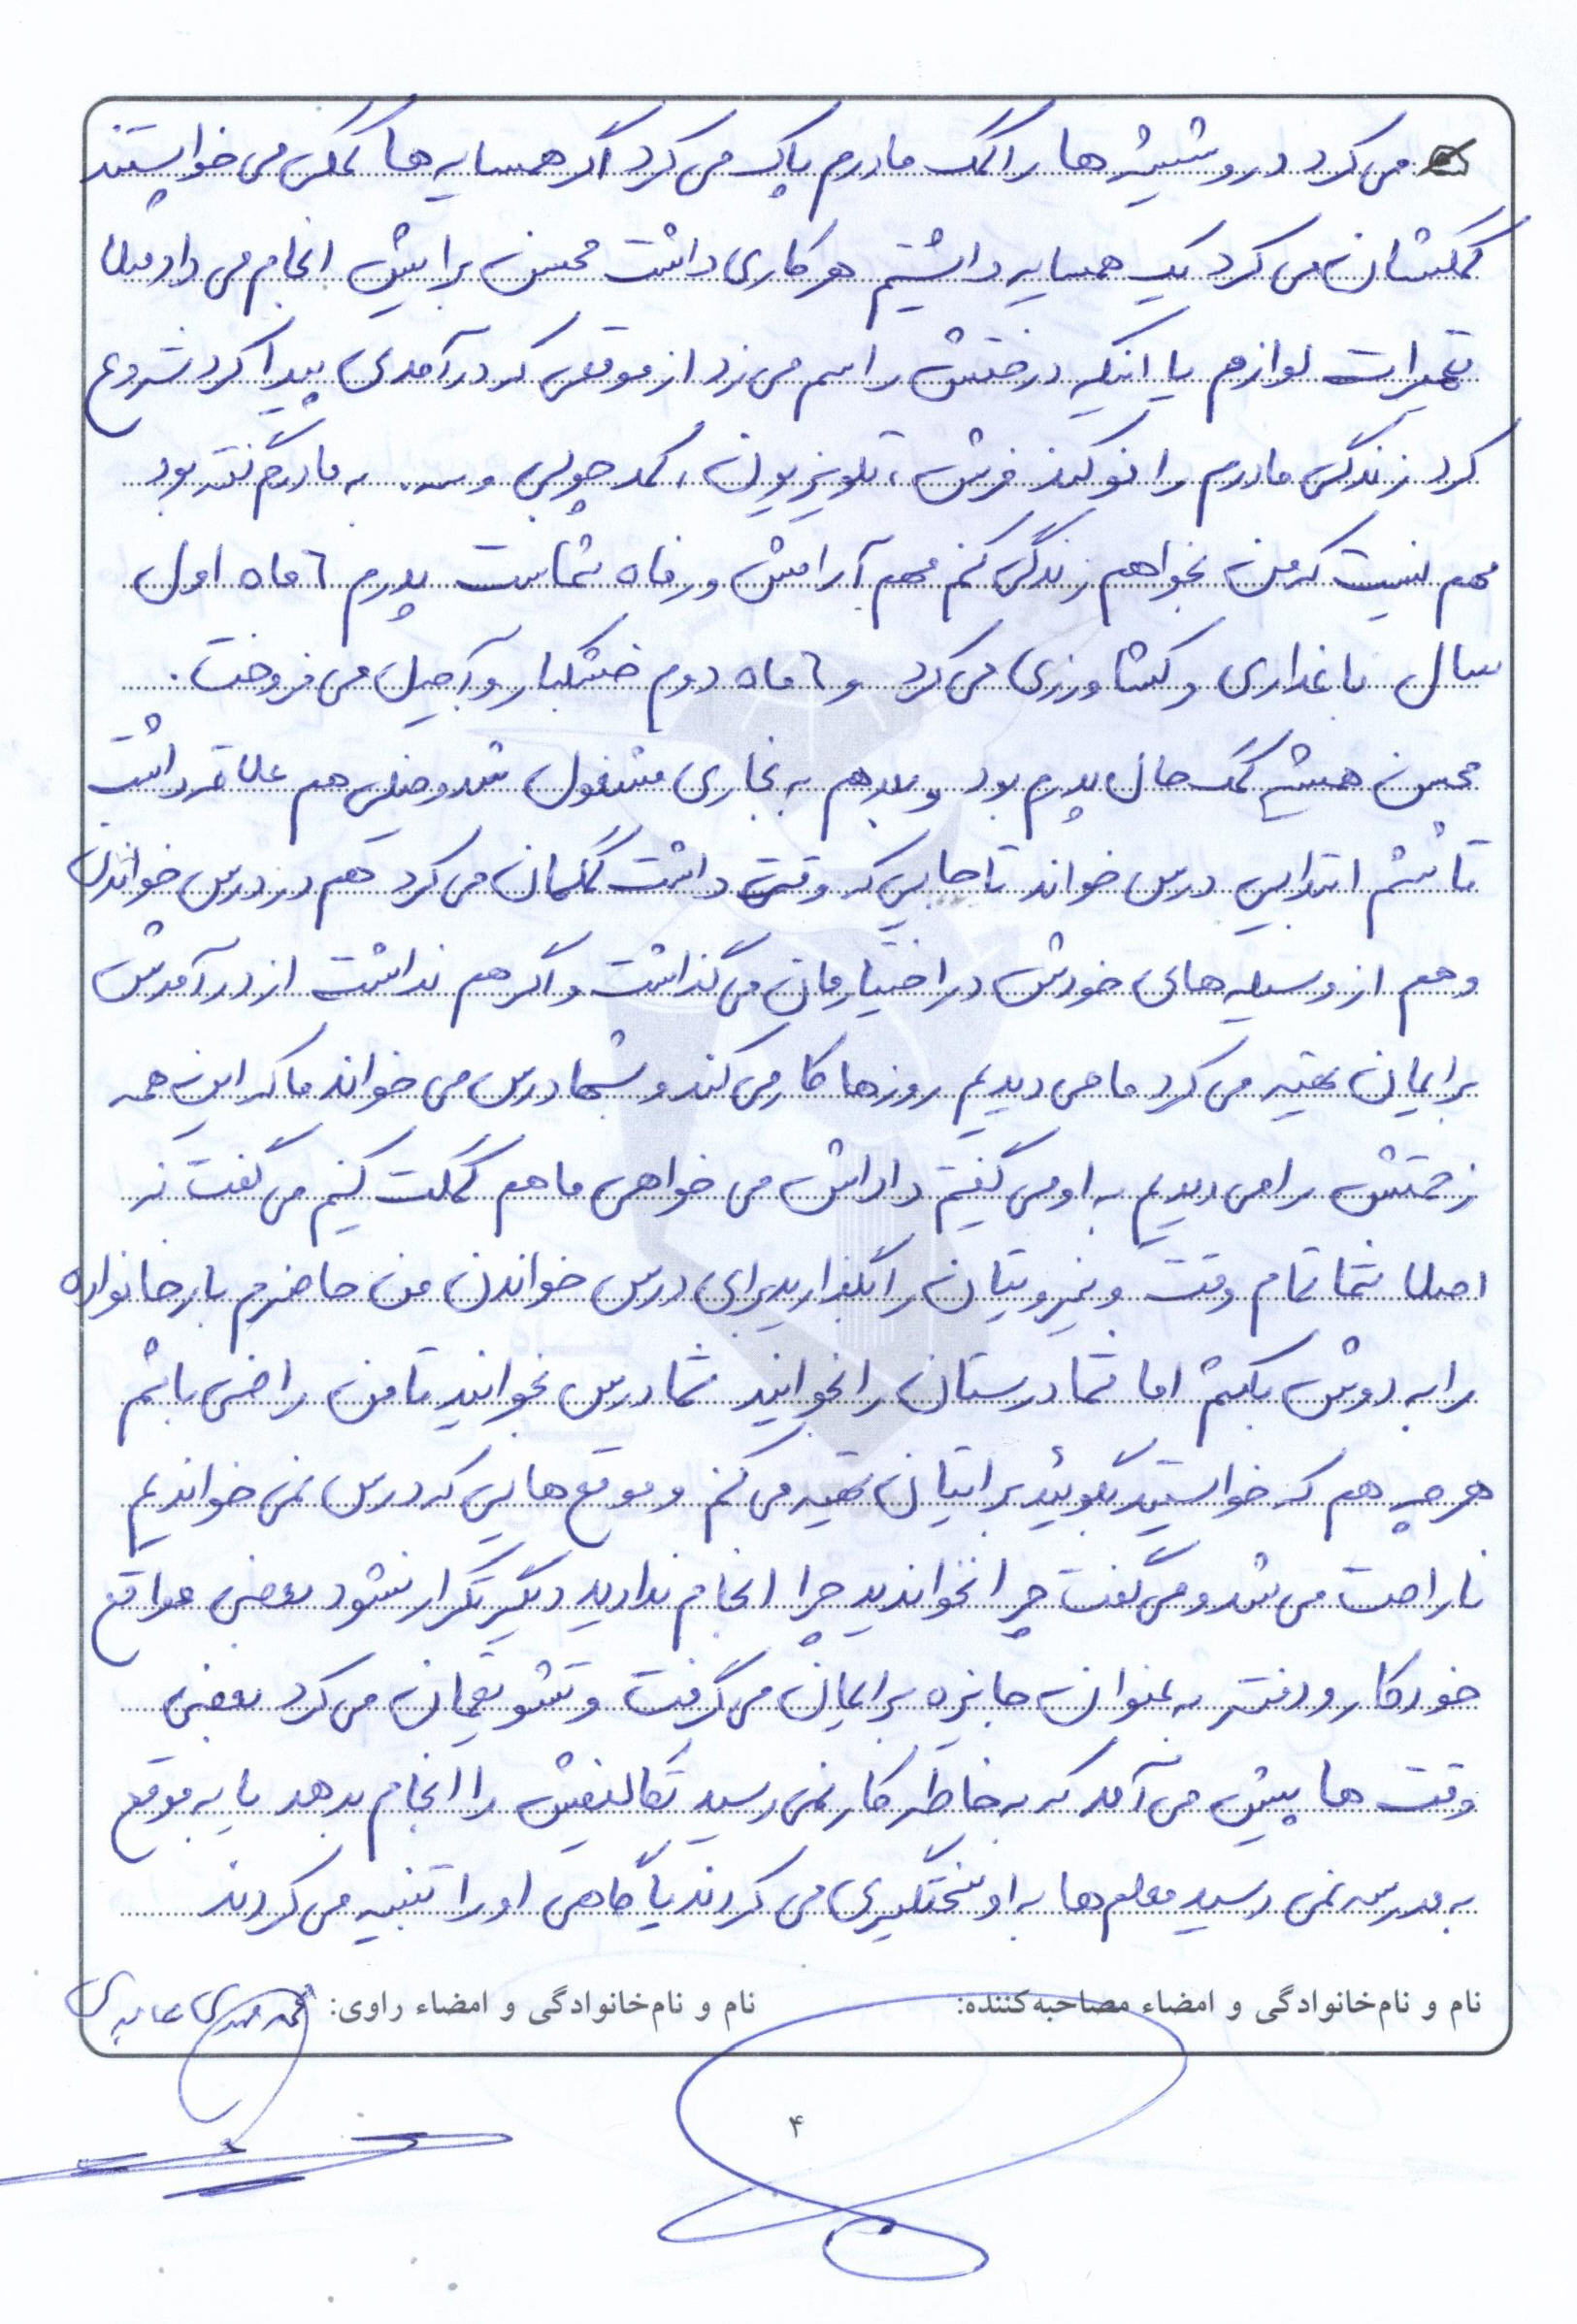 می کرد در و شیشه ها را کمک مادرم پاک می کرد اگر همسایه ها کمکی می خواستند
کمکشان می کرد یک همسایه داشتیم هر کاری داشت محسن برایش انجام می داد مثلا
تعمیرات لوازم یا اینکه درختش را سم می زد از موقعی که درآمدی پیدا کرد شروع
کرد زندگی مادرم را نو کند فرش، تلویزیون، کمد چوبی و ... به مادرم گفته بود
مهم نیست که من بخواهم زندگی کنم مهم آرامش و رفاه شماست پدرم ٦ ماه اول
سال باغداری و کشاورزی می کرد و ٦ ماه دوم خشکبار و آجیل می فروخت.
محسن همیشه کمک حال پدرم بود و بعد هم به نجاری مشغول شد و خیلی هم علاقه داشت
تا ششم ابتدایی درس خواند تا جایی که وقت داشت کمکمان می کرد هم در درس خواندن
و هم از وسیله های خودش در اختیارمان می گذاشت و اگر هم نداشت از درآمدش
برایمان تهیه می کرد ما می دیدیم روزها کار می کند و شبها درس می خواند ما که این همه
زحمتش را می دیدیم به او می گفتیم داداش می خواهی ما هم کمکت کنیم می گفت نه
اصلا شما تمام وقت و نیرویتان را بگذارید برای درس خواندن من حاضرم بار خانواده
را به دوش بکشم اما شما درستان را بخوانید شما درس بخوانید تا من راضی باشم
هر چه هم که خواستید بگوئید برایتان تهیه می کنم و موقع هایی که درس نمی خواندیم
ناراحت می شد و می گفت چرا نخواندید چرا انجام ندادید دیگر تکرار نشود بعضی مواقع
خودکار و دفتر به عنوان جایزه برایمان می گرفت و تشویقمان می کرد بعضی
وقت ها پیش می آمد که به خاطر کار نمی رسید تکالیفش را انجام بدهد یا به موقع
به مدرسه نمی رسید معلم ها به او سختگیری می کردند یا گاهی او را تنبیه می کردند
نام و نام‌خانوادگی و امضاء مصاحبه‌کننده: نام و نام‌خانوادگی و امضاء راوی: محمد مهدی عابدی
۴